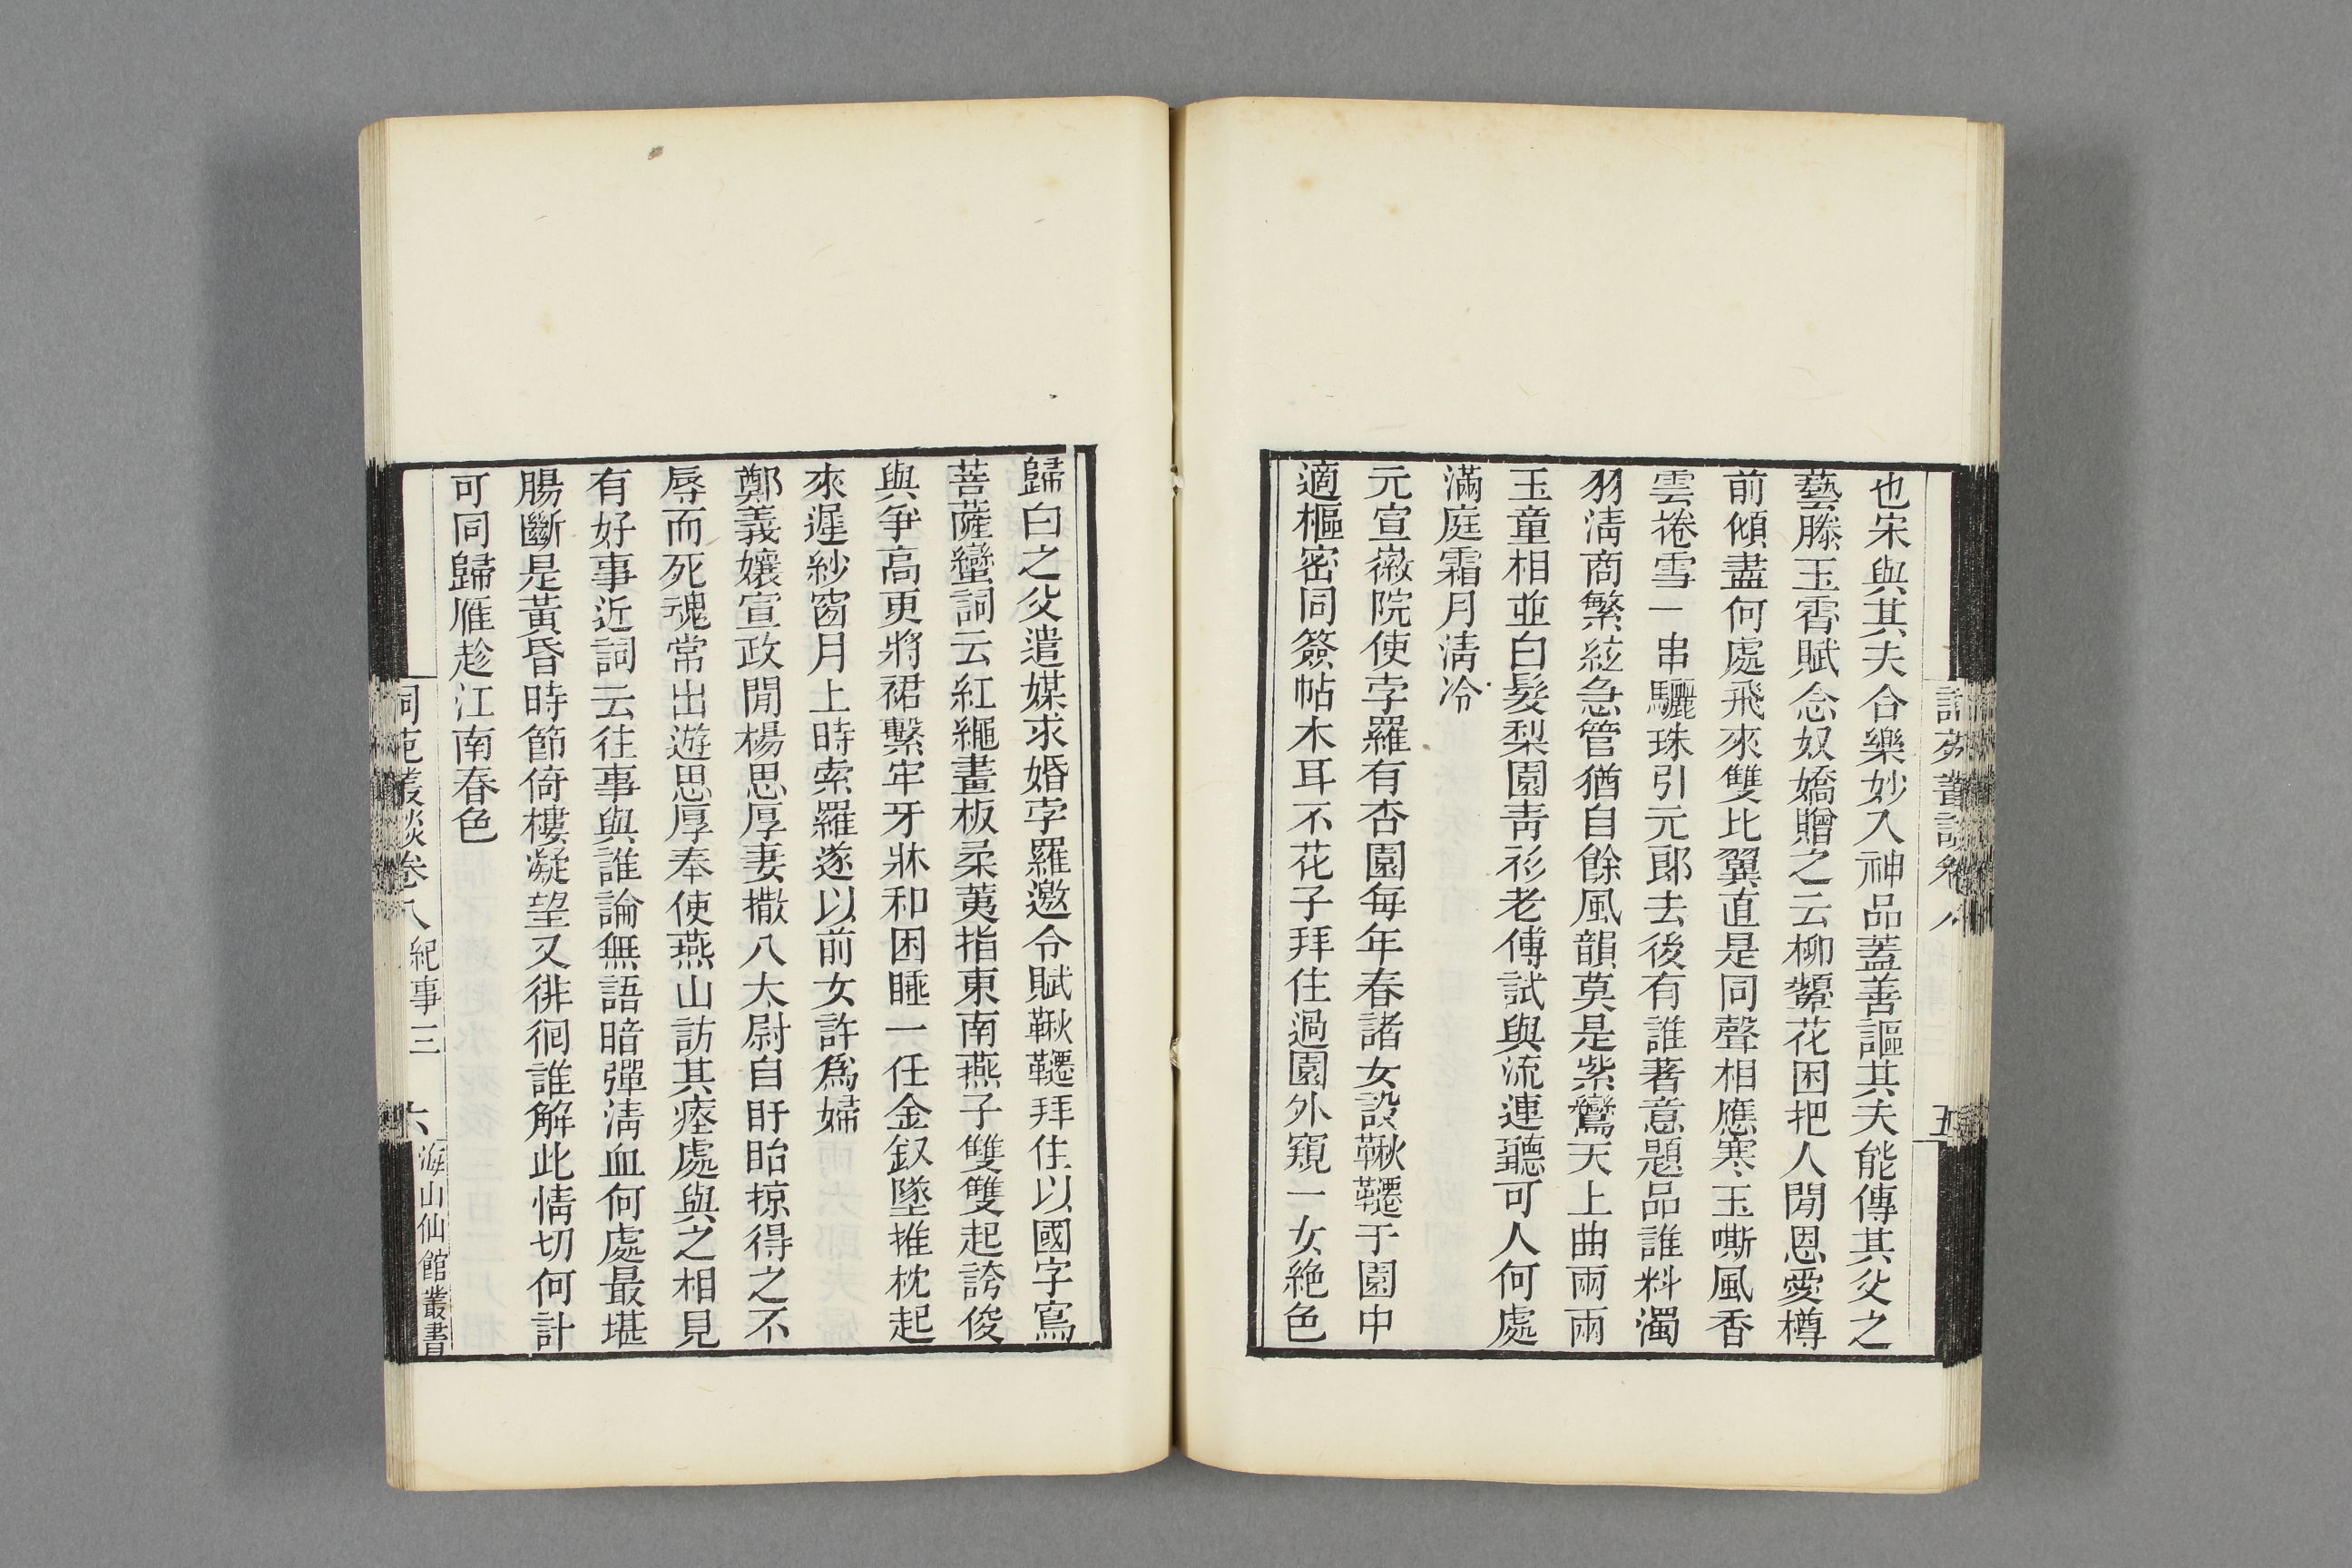 也宋與其夫合樂妙入神品蓋善謳其夫能傳其父之
藝滕玉霄賦念奴嬌贈之云柳顰花困把人閒恩愛樽
前傾盡何處飛來雙比翼直是同聲相應寒玉嘶風香
雲捲雪一串驪珠引元郎去後有誰著意題品誰料濁
羽清商繁絃急管猶自餘風韻莫是紫鸞天上曲兩兩
玉童相並白髮梨園靑衫老傅試與流連聽可人何處
滿庭霜月淸冷
元宣徽院使孛羅有杏園每年春諸女設鞦韆于園中
適樞密同簽帖木耳不花子拜住過園外窺一女絶色
歸白之父遣媒求婚孛羅邀令賦鞦韆拜住以國字寫
菩薩蠻詞云紅繩畫板柔荑指東南燕子雙雙起誇俊
與爭高更將裙繫牢牙牀和困睡一任金釵墜推枕起
來遲紗窗月上時索羅遂以前女許爲婦
鄭義孃宣政閒楊思厚妻撒八太尉自盱眙掠得之不
辱而死魂常出遊思厚奉使燕山訪其瘞處與之相見
有好事近詞云往事與誰論無語暗彈淸血何處最堪
腸斷是黃昏時節倚樓凝望又徘徊誰解此情切何計
可同歸雁趁江南春色
詞苑叢談卷八 紀事三 六 海山仙館叢書